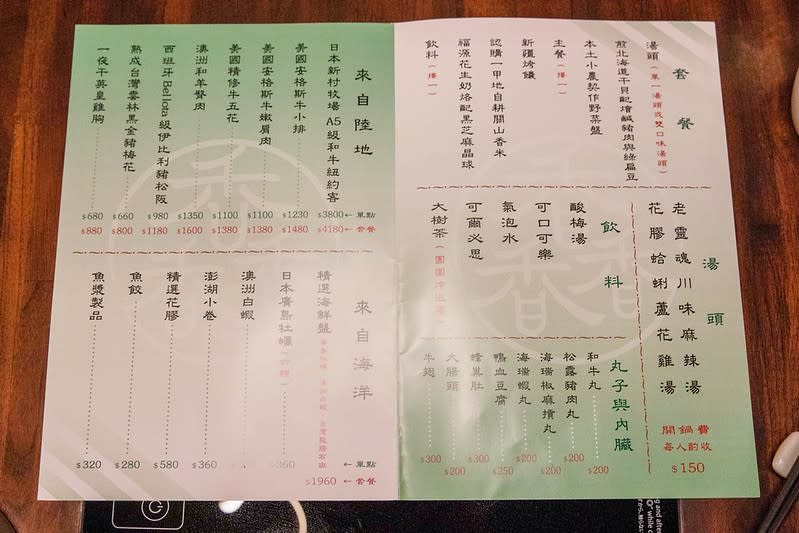 套餐
湯頭(單一湯頭或雙口味湯頭)
煎北海道干貝配燴鹹豬肉與綠扁豆
本土小農契作野菜盤
主餐(擇一)
新疆烤饢
認購一甲地自耕關山香米
福源花生奶烙配黑芝麻晶球
飲料(擇一)
湯頭
老靈魂川味麻辣湯
花膠蛤蜊蘆花雞湯
開鍋費
每人酌收
$150
飲料
酸梅湯
可口可樂
氣泡水
可爾必思
大樹茶
丸子與內臟
和牛丸 $200
松露豬肉丸 $200
海瑞椒麻摃丸 $200
海瑞蝦丸 $200
鴨血豆腐 $250
蜂巢肚 $300
大腸頭 $200
牛翅 $300
來自陸地
←單點
←套餐
日本新村牧場A5級和牛紐約客 $3800 $4180
美國安格斯牛小排 $1230 $1480
美國安格斯牛嫩肩肉 $1100 $1380
美國精修牛五花 $1100 $1380
澳洲和羊臀肉 $1350 $1600
西班牙Bellota級伊比利豬松阪 $980 $1180
熟成台灣雲林黑金豬梅花 $660 $880
一夜干英皇雞胸 $680 $880
來自海洋
←單點
←套餐
精選海鮮盤 $1960
日本廣島牡蠣 $360
澳洲白蝦
澎湖小卷 $360
精選花膠 $580
魚餃 $280
魚漿製品 $320